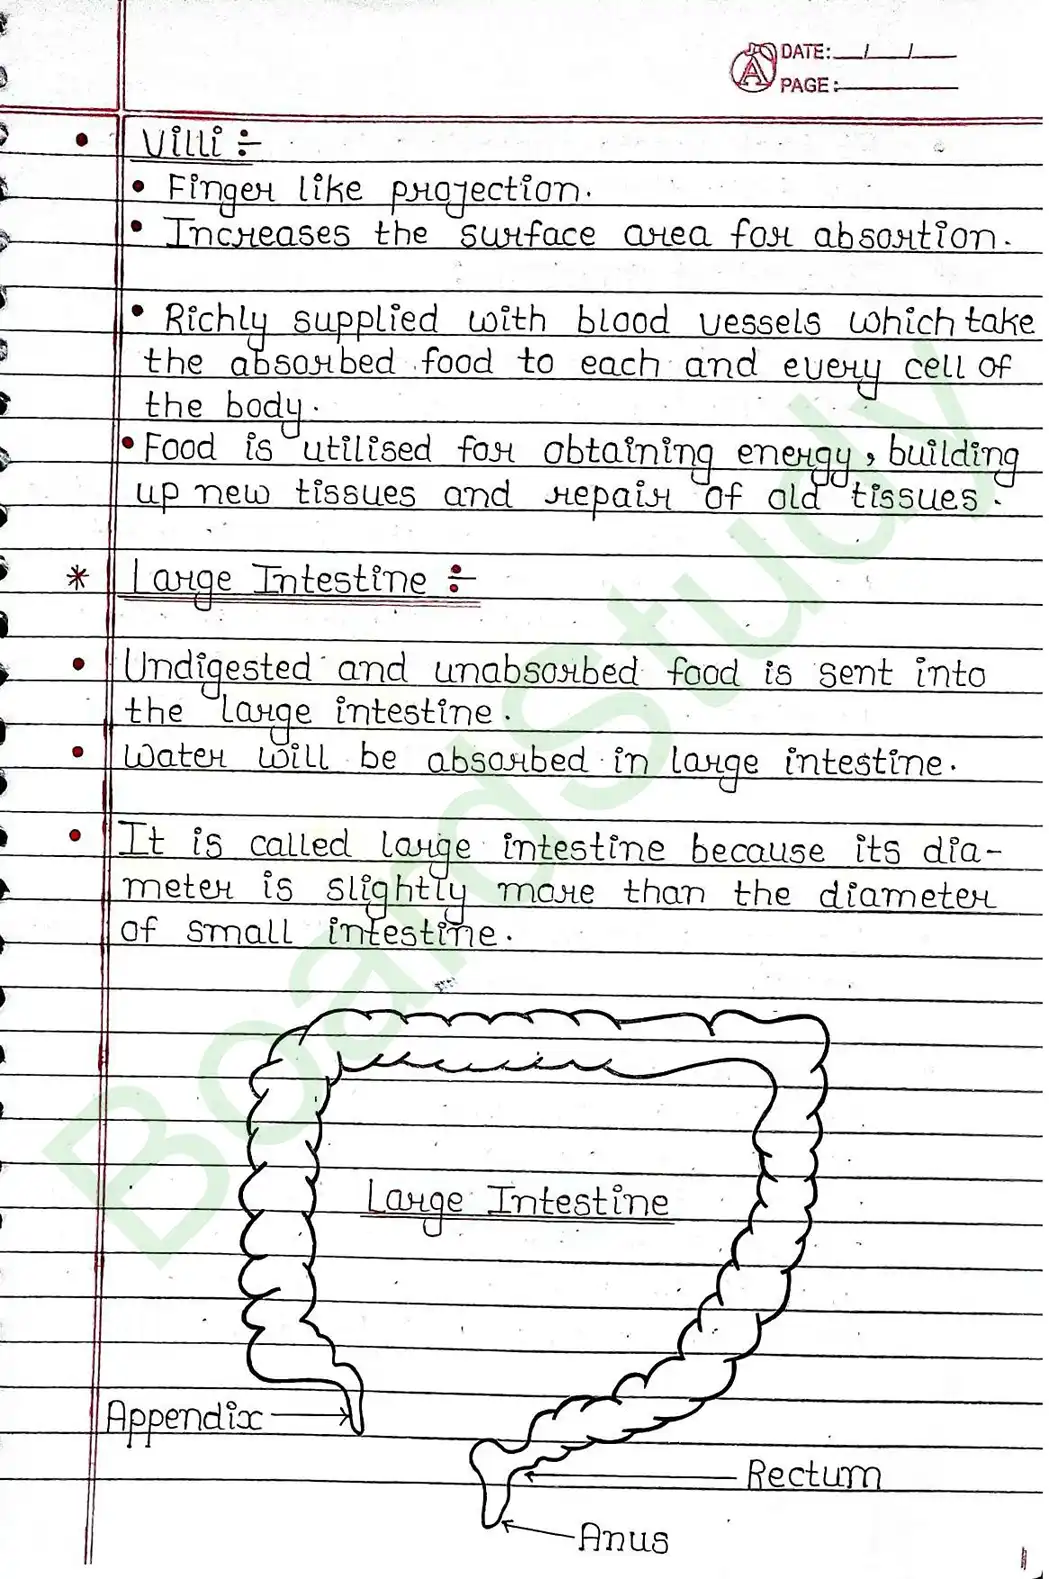 DATE: __/__/__
PAGE:
• Villi ÷
• Finger like projection.
• Increases the surface area for absortion.
• Richly supplied with blood vessels which take
the absorbed food to each and every cell of
the body.
• Food is utilised for obtaining energy, building
up new tissues and repair of old tissues.
* Large Intestine ÷
• Undigested and unabsorbed food is sent into
the large intestine.
• Water will be absorbed in large intestine.
• It is called large intestine because its dia-
meter is slightly more than the diameter
of small intestine.
Large Intestine
Appendix
Rectum
Anus
BoardStudy